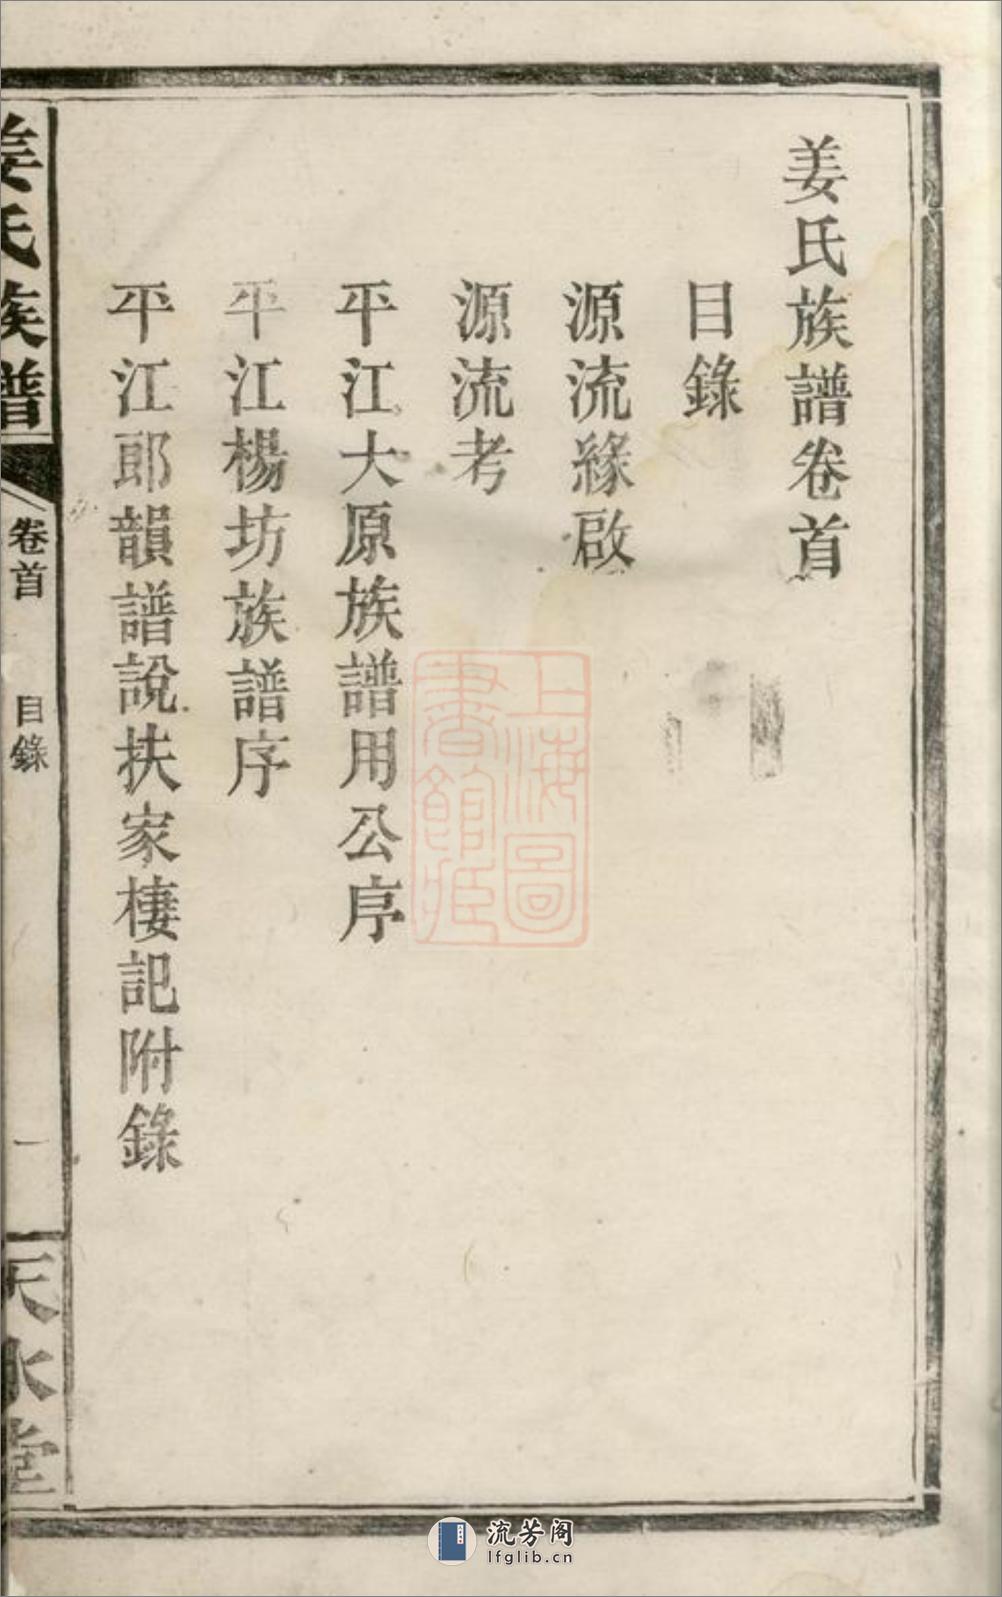 姜氏族譜卷首
目錄
源流緣啟
源流考
平江大原族譜用公序
平江楊坊族譜序
平江郎韻譜說扶家棲記附錄
姜氏族譜
卷首
目錄
一
天水堂
上海圖書館藏
流芳阁
lfglib.cn